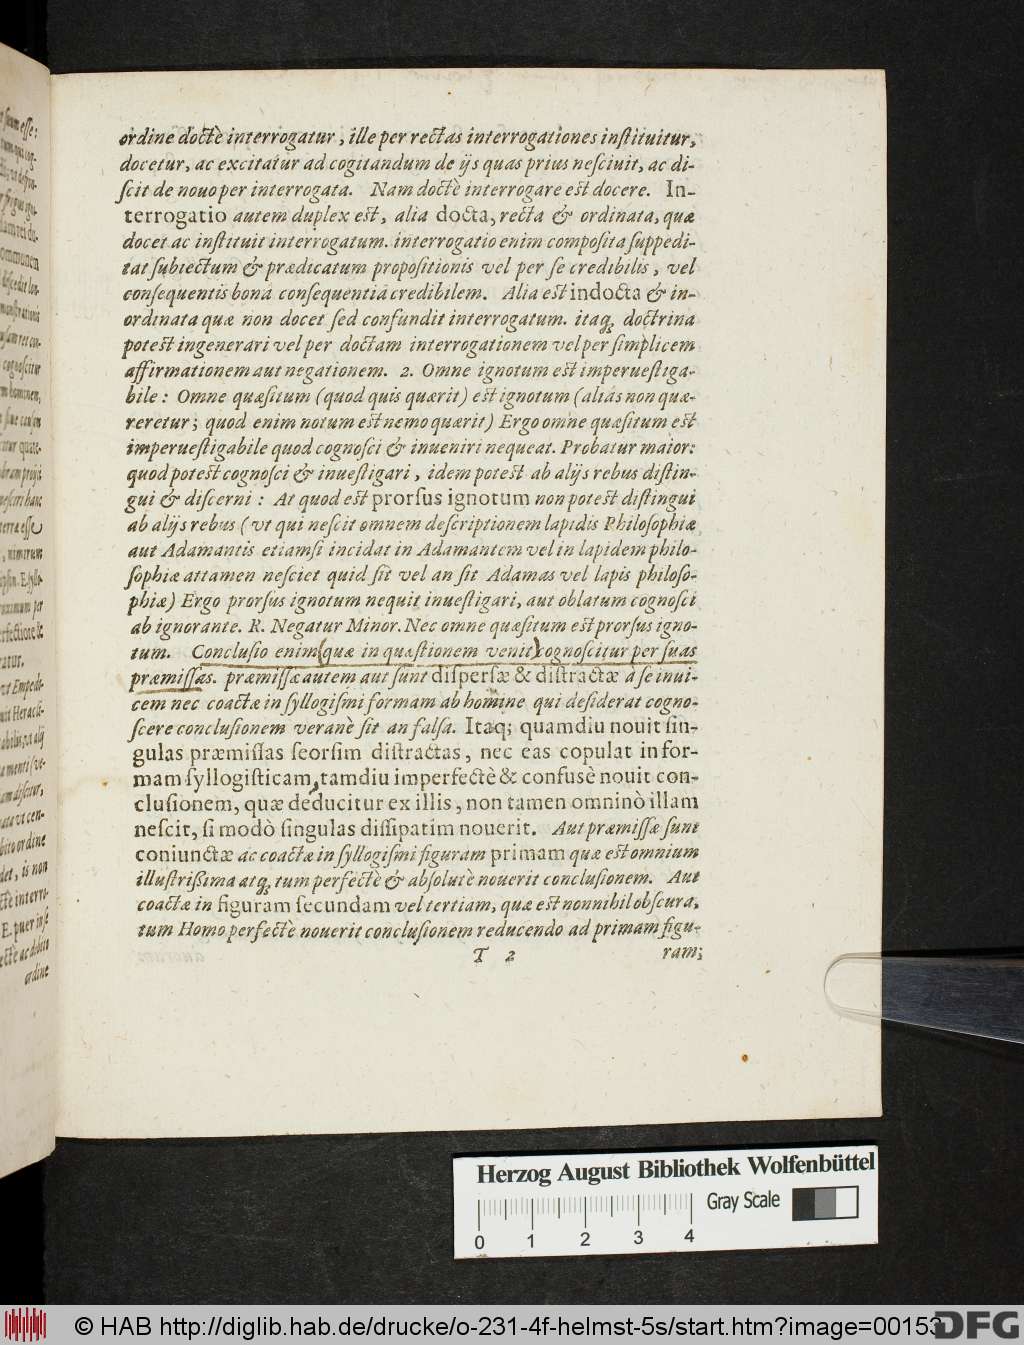 ordine doctè interrogatur, ille per rectas interrogationes instituitur,
docetur, ac excitatur ad cogitandum de ijs quas prius nesciuit, ac di-
scit de nouo per interrogata. Nam doctè interrogare est docere. In-
terrogatio autem duplex est, alia docta, recta & ordinata, quæ
docet ac instituit interrogatum. interrogatio enim composita suppedi-
tat subiectum & prædicatum propositionis vel per se credibilis, vel
consequentis bonâ consequentiâ credibilem. Alia est indocta & in-
ordinata quæ non docet sed confundit interrogatum. itaq; doctrina
potest ingenerari vel per doctam interrogationem vel per simplicem
affirmationem aut negationem. 2. Omne ignotum est imperuestiga-
bile: Omne quæsitum (quod quis quærit) est ignotum (aliàs non quæ-
reretur; quod enim notum est nemo quærit) Ergo omne quæsitum est
imperuestigabile quod cognosci & inueniri nequeat. Probatur maior:
quod potest cognosci & inuestigari, idem potest ab alijs rebus distin-
gui & discerni: At quod est prorsus ignotum non potest distingui
ab alijs rebus (vt qui nescit omnem descriptionem lapidis Philosophiæ
aut Adamantis etiamsi incidat in Adamantem vel in lapidem philo-
sophiæ attamen nesciet quid sit vel an sit Adamas vel lapis philoso-
phiæ) Ergo prorsus ignotum nequit inuestigari, aut oblatum cognosci
ab ignorante. R. Negatur Minor. Nec omne quæsitum est prorsus igno-
tum. Conclusio enim (quæ in quæstionem venit) cognoscitur per suas
præmissas. præmissæ autem aut sunt dispersæ & distractæ à se inui-
cem nec coactæ in syllogismi formam ab homine qui desiderat cogno-
scere conclusionem veranè sit an falsa. Itaq; quamdiu nouit sin-
gulas præmissas seorsim distractas, nec eas copulat in for-
mam syllogisticam, tamdiu imperfectè & confusè nouit con-
clusionem, quæ deducitur ex illis, non tamen omninò illam
nescit, si modò singulas dissipatim nouerit. Aut præmissæ sunt
coniunctæ ac coactæ in syllogismi figuram primam quæ est omnium
illustrißima atq; tum perfectè & absolutè nouerit conclusionem. Aut
coactæ in figuram secundam vel tertiam, quæ est nonnihil obscura,
tum Homo perfectè nouerit conclusionem reducendo ad primam figu-
T 2 ram;
Herzog August Bibliothek Wolfenbüttel
Gray Scale
0 1 2 3 4
© HAB http://diglib.hab.de/drucke/o-231-4f-helmst-5s/start.htm?image=00153
DFG